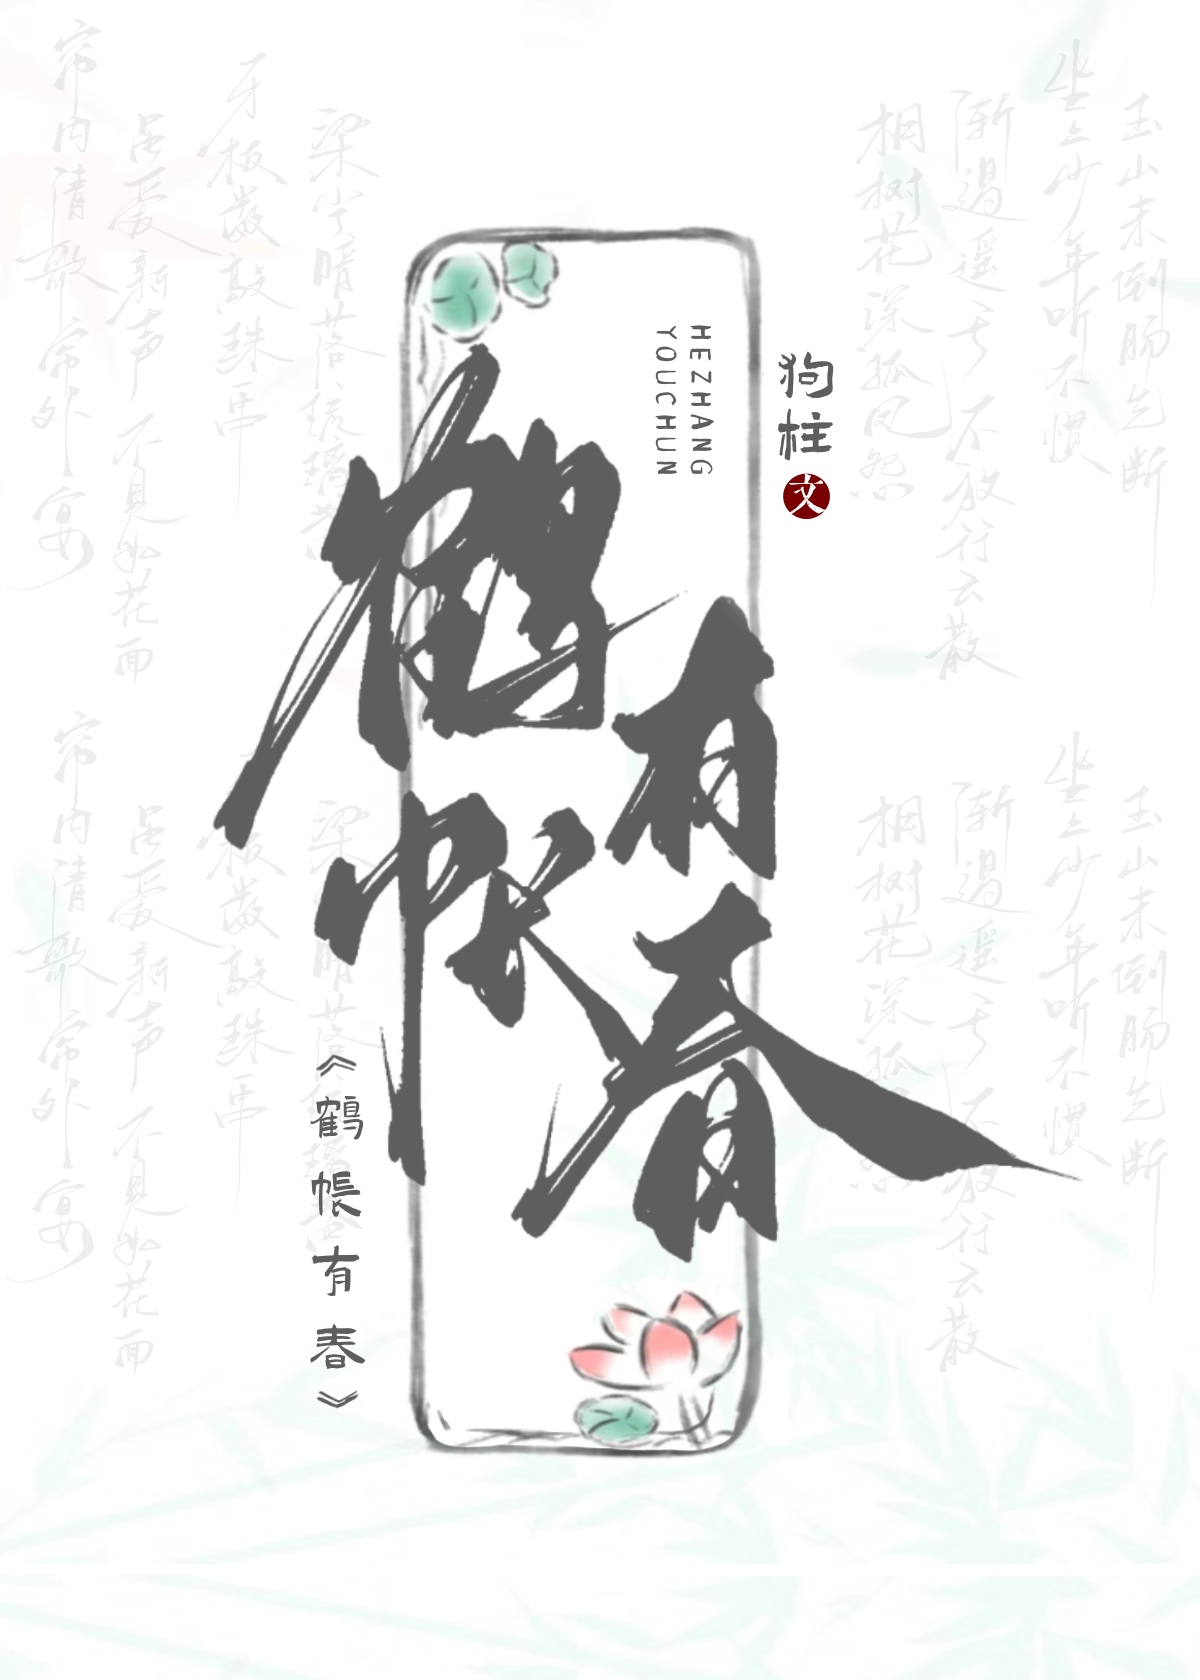 鹤帐
有春
HEZHANG
YOUCHUN
狗柱
文
《鹤帐有春》
帘内清歌帘外宴
虽爱新声不见如花面
牙板数敲珠一串
梁尘暗落琉璃盏
桐树花深孤凤怨
渐遏遥天不放行云散
坐上少年听不惯
玉山未倒肠先断
帘内清歌帘外宴
虽爱新声不见如花面
板数敲珠一串
桐树花深孤
渐遏遥天不放行云散
坐上少年听不惯
玉山未倒肠先断